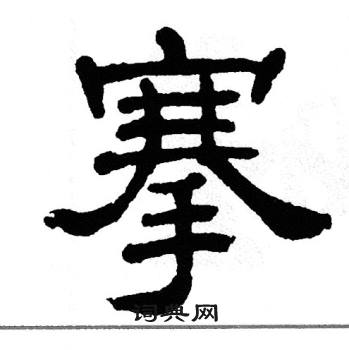 搴
词典网